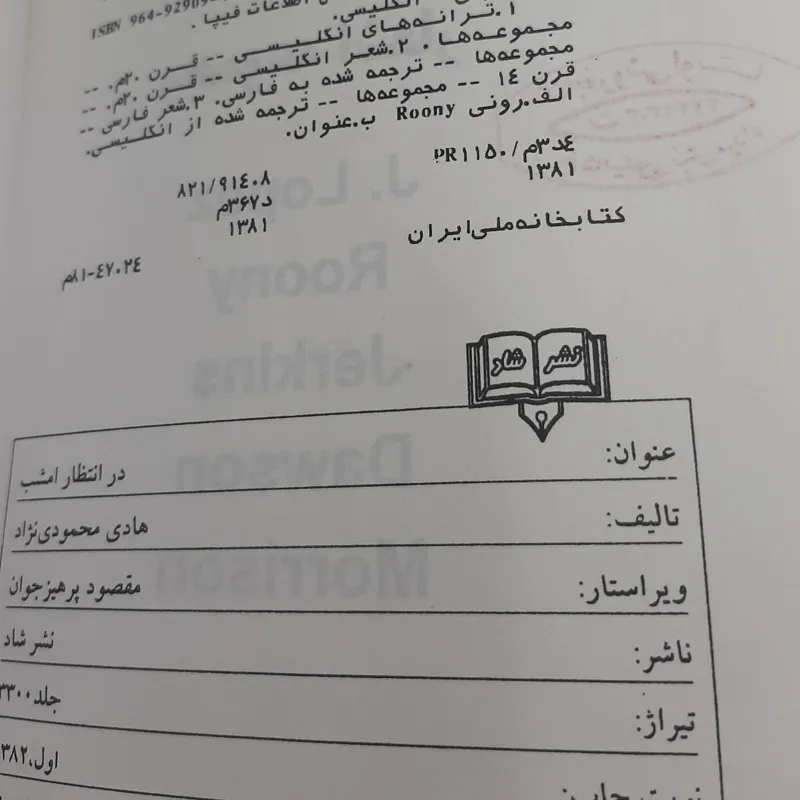 انگلیسی.
اطلاعات فیپا.
ISBN 964-9290
۱.ترانه‌های انگلیسی -- قرن ۲۰م. --
مجموعه‌ها. ۲.شعر انگلیسی -- قرن ۲۰م. --
مجموعه‌ها -- ترجمه شده به فارسی. ۳.شعر فارسی --
قرن ۱۴ -- مجموعه‌ها -- ترجمه شده از انگلیسی.
الف.رونی Roony ب.عنوان.
۸۲۱/۹۱۴۰۸
د۳۶۷م
۱۳۸۱
PR۱۱۵۰/م۳د۴
۱۳۸۱
کتابخانه‌ملی‌ایران
م۸۱-۴۷۰۲۴
نشر شاد
عنوان: در انتظار امشب
تالیف: هادی محمودی‌نژاد
ویراستار: مقصود پرهیزجوان
ناشر: نشر شاد
تیراژ: ۳۳۰۰جلد
نوبت چاپ: اول،۱۳۸۲
J. Lopez
Roony
Jerkins
Dawson
Morrison